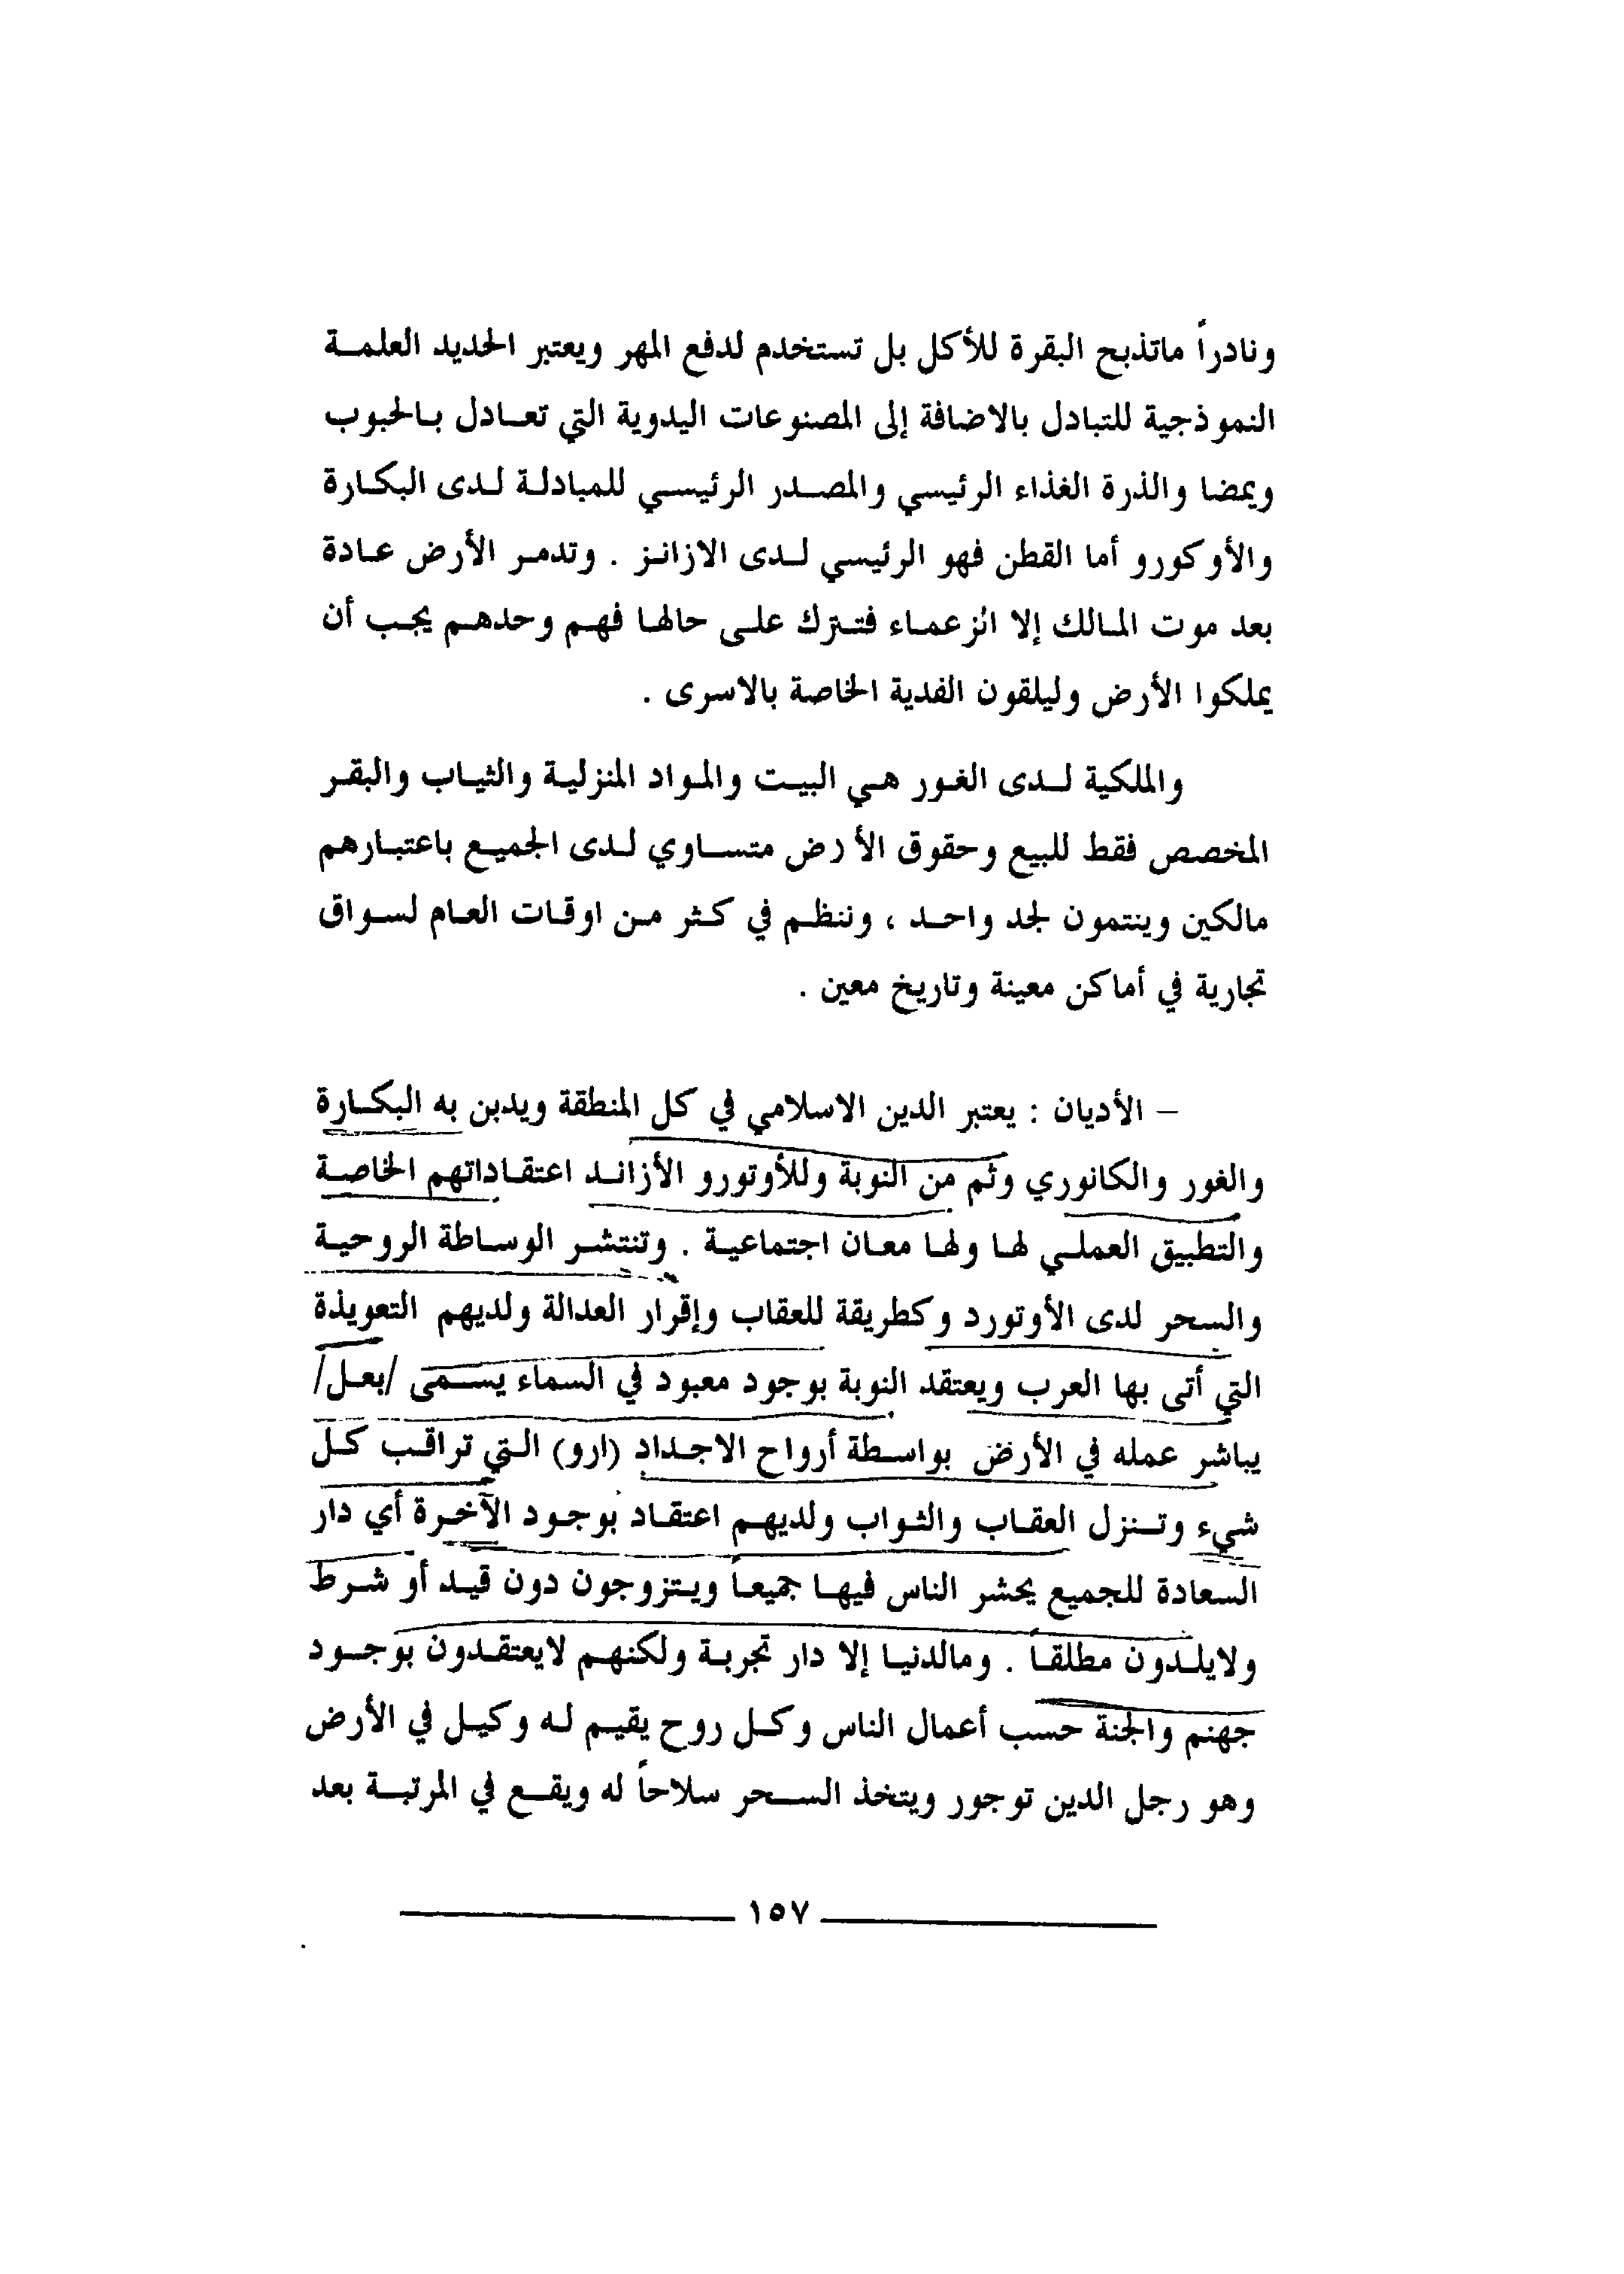 ونادراً ماتذبح البقرة للأكل بل تستخدم لدفع المهر ويعتبر الحديد العلمـة
النموذجية للتبادل بالاضافة إلى المصنوعات اليدوية التي تعـادل بـالحبوب
ويمضا والذرة الغذاء الرئيسي والمصـدر الرئيسـي للمبادلـة لـدى البكـارة
والأوكورو أما القطن فهو الرئيسي لـدى الازانـز . وتدمـر الأرض عـادة
بعد موت المـالك إلا الزعمـاء فتـترك علـى حالها فهـم وحدهـم يجـب أن
يملكوا الأرض وليلقون الفدية الخاصة بالاسرى .
والملكية لـدى الغـور هـي البيـت والمـواد المنزليـة والثيـاب والبقـر
المخصص فقط للبيع وحقوق الأرض متسـاوي لـدى الجميـع باعتبـارهم
مالكين وينتمون لجد واحـد ، وننظـم في كـثر مـن اوقـات العـام لسـواق
تجارية في أماكن معينة وتاريخ معين .
– الأديان : يعتبر الدين الاسلامي في كل المنطقة ويدبن به البكـارة
والغور والكانوري وثم من النوبة وللأوتورو الأزانـد اعتقـاداتهم الخاصـة
والتطبيق العملـي لهـا ولهـا معـان اجتماعيـة . وتنتشـر الوسـاطة الروحيـة
والسحر لدى الأوتورد وكطريقة للعقاب وإقرار العدالة ولديهم التعويذة
التي أتى بها العرب ويعتقد النوبة بوجود معبود في السماء يسـمى /بعـل/
يباشر عمله في الأرض بواسـطة أرواح الاجـداد (ارو) الـتي تراقـب كـل
شيء وتـنزل العقـاب والثـواب ولديهـم اعتقـاد بوجـود الآخـرة أي دار
السعادة للجميع يحشر الناس فيهـا جميعـاً ويـتزوجون دون قيـد أو شـرط
ولايلـدون مطلقـاً . ومالدنيـا إلا دار تجربـة ولكنهـم لايعتقـدون بوجـود
جهنم والجنة حسب أعمال الناس وكـل روح يقيـم لـه وكيـل في الأرض
وهو رجل الدين توجور ويتخذ السـحر سلاحاً له ويقـع في المرتبـة بعد
١٥٧